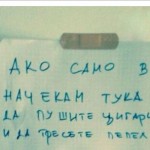 АКО САМО В
НАЧЕКАМ ТУКА
ДА ПУШИТЕ ЦИГАРИ
И ДА ТРЕСЕТЕ ПЕПЕЛ